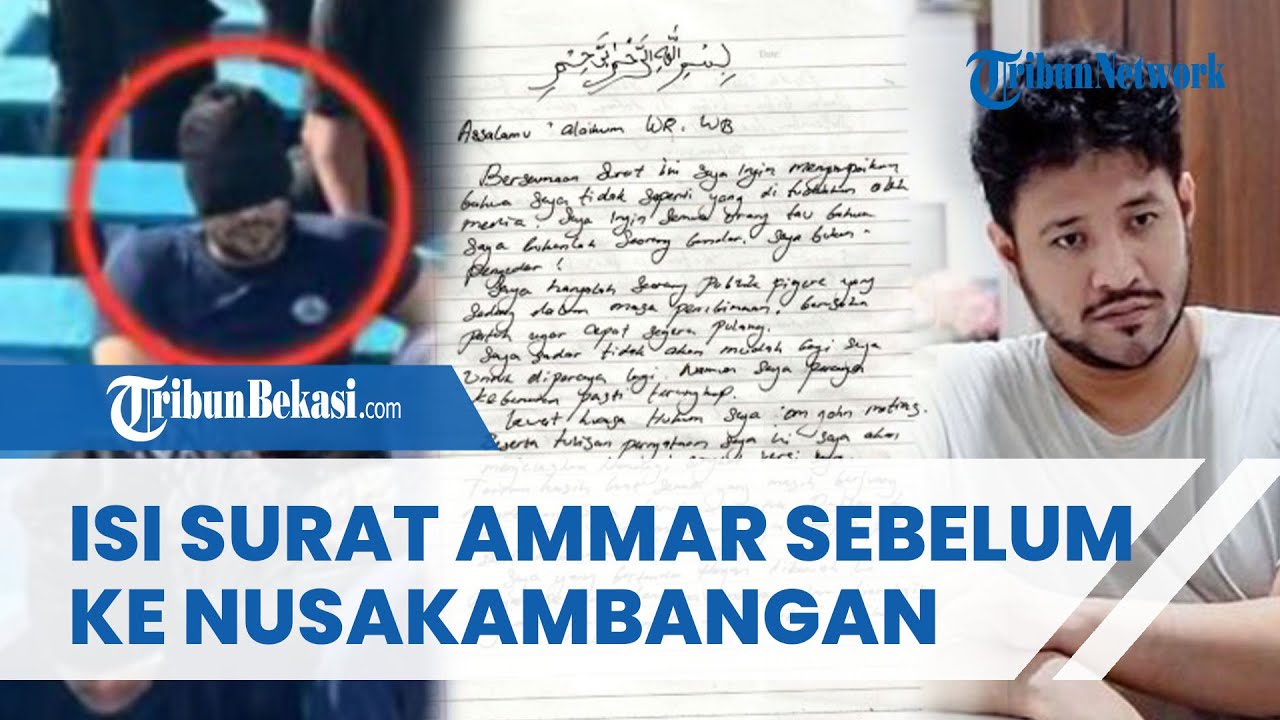 TribunNetwork
Date:
بسم الله الرحمن الرحيم
Assalamu'alaikum WR. WB
Bersamaan surat ini saya ingin menyampaikan
bahwa saya tidak seperti yang di tuduhkan oleh
media. Saya ingin semua orang tau bahwa
saya bukanlah seorang bandar. Saya bukan
pengedar!
Saya hanyalah seorang publik figure yang
sedang dalam masa pembinaan, berusaha
patuh agar cepat segera pulang.
Saya sadar tidak akan mudah lagi saya
untuk dipercaya lagi. Namun saya percaya
kebenaran pasti terungkap.
Lewat kuasa hukum saya om john mating.
Beserta tulisan pernyataan saya ini saya akan
TribunBekasi.com
ISI SURAT AMMAR SEBELUM
KE NUSAKAMBANGAN